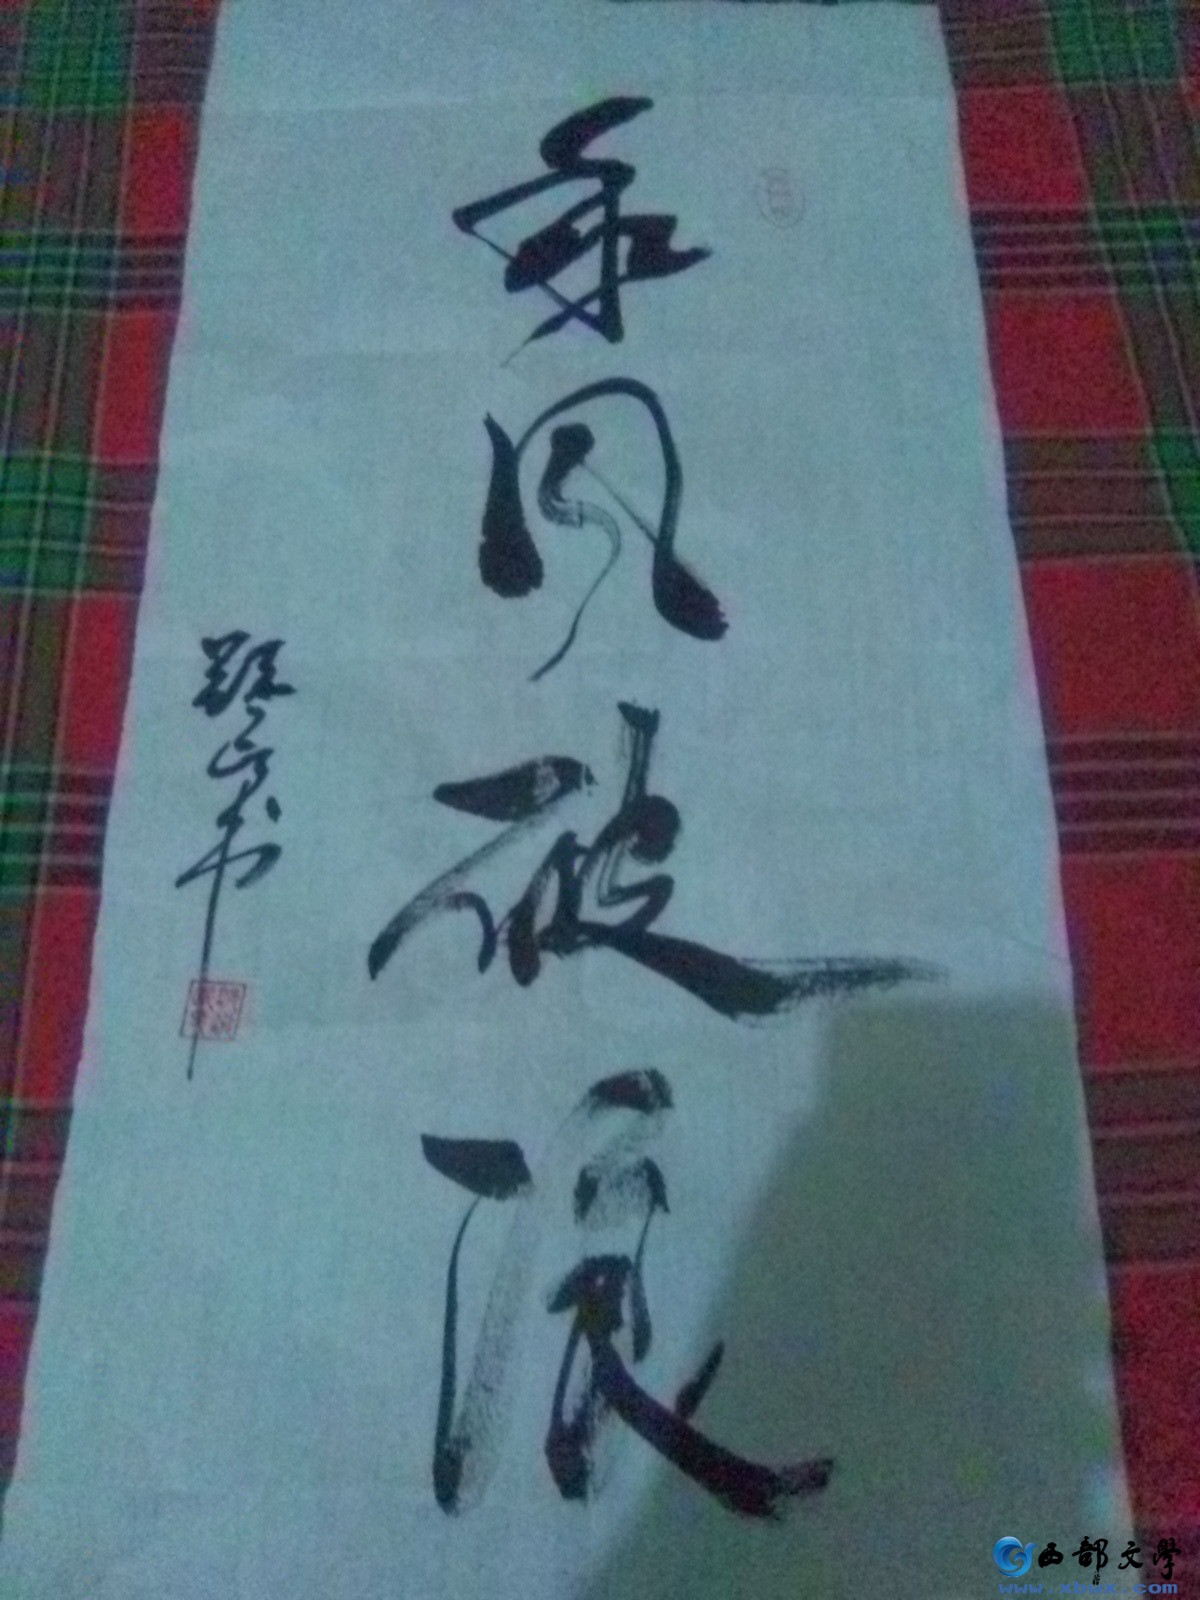 乘风破浪
西部文學
www.xbwx.com